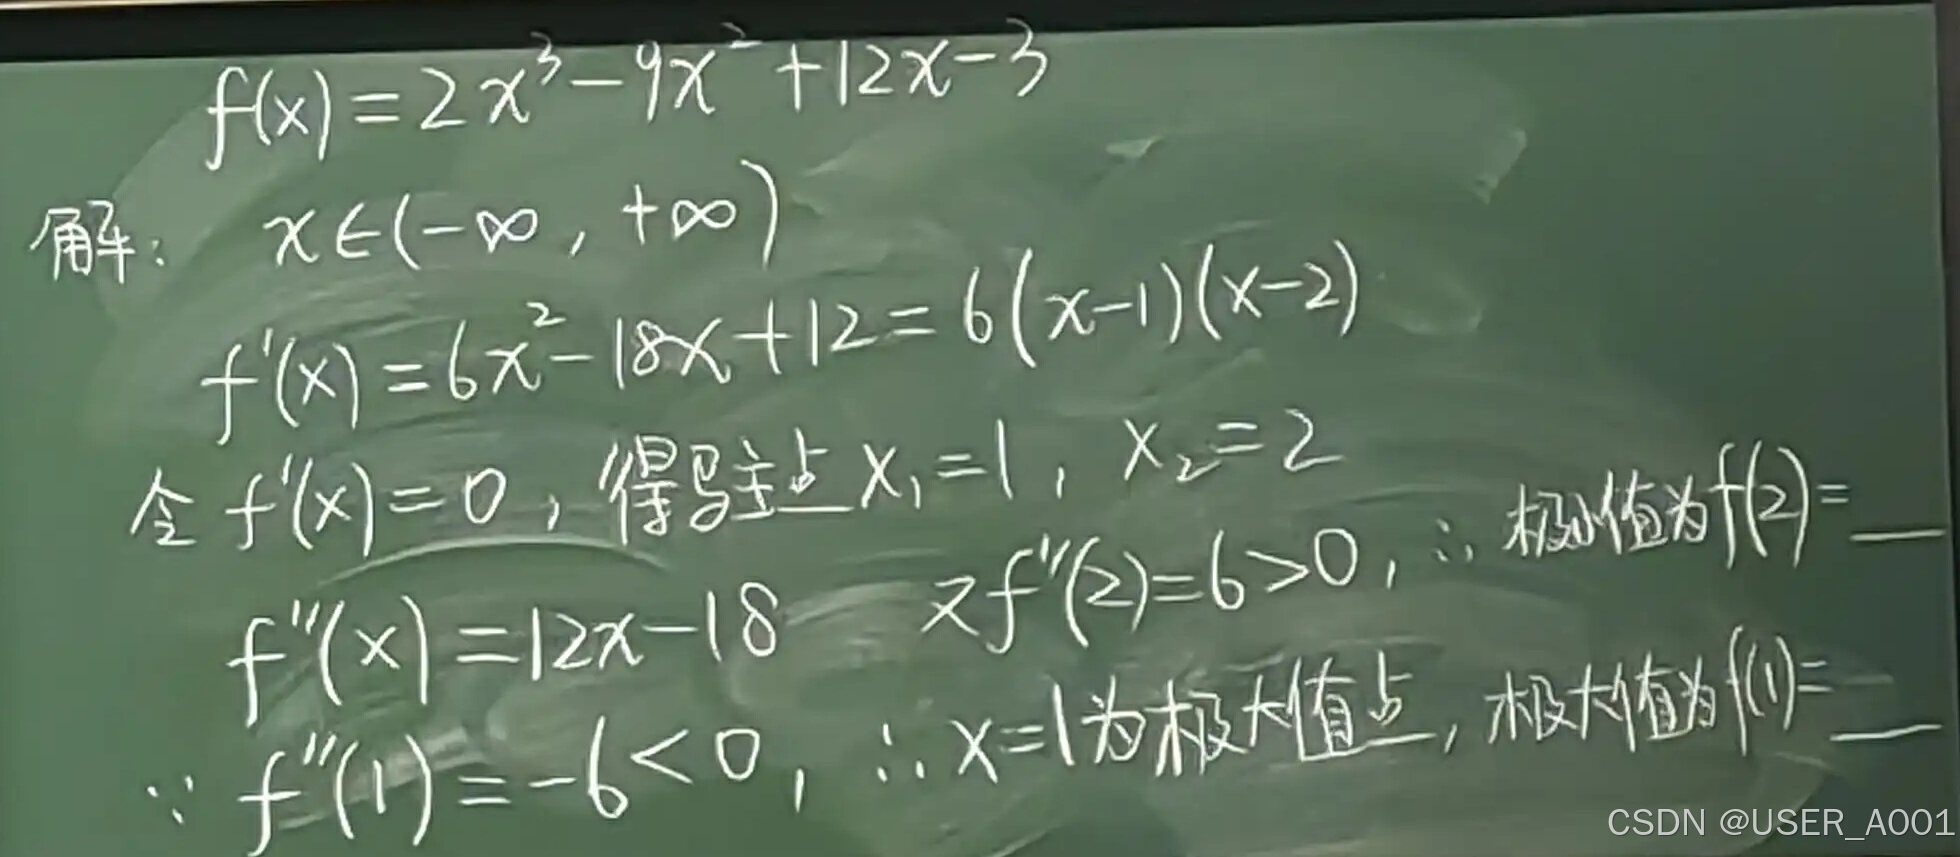 f(x)=2x³-9x²+12x-3
解: x∈(-∞, +∞)
f'(x)=6x²-18x+12=6(x-1)(x-2)
令f'(x)=0, 得驻点x₁=1, x₂=2
f''(x)=12x-18 又f''(2)=6>0, ∴极小值为f(2)=__
∵f''(1)=-6<0, ∴x=1为极大值点, 极大值为f(1)=__
CSDN @USER_A001